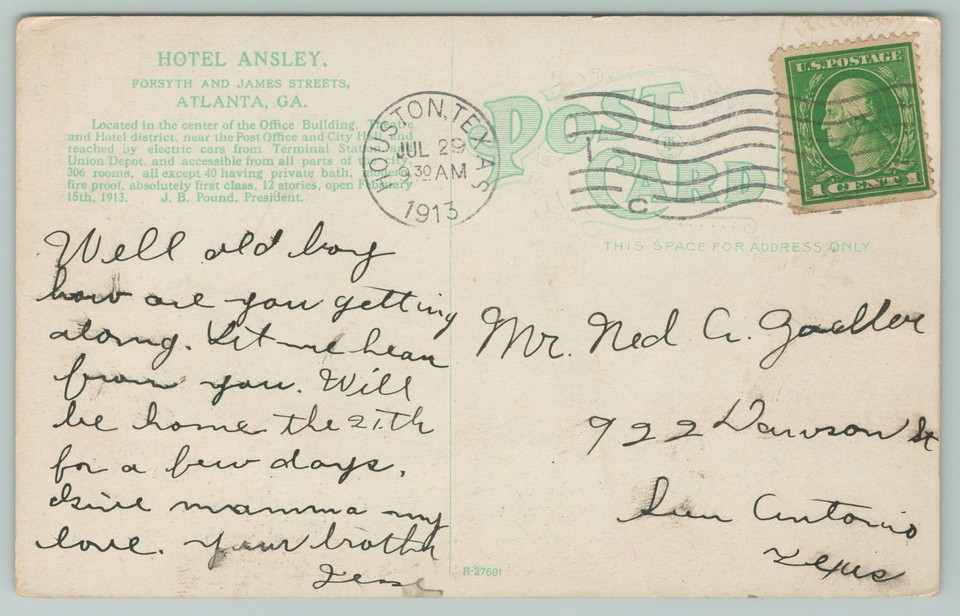 HOTEL ANSLEY,
FORSYTH AND JAMES STREETS,
ATLANTA, GA.
Located in the center of the Office Building,
and Hotel district, near the Post Office and City Hall and
reached by electric cars from Terminal
Union Depot, and accessible from all parts of
306 rooms, all except 40 having private bath, modern
fire proof, absolutely first class, 12 stories, open February
15th, 1913. J. B. Pound, President.
HOUSTON, TEXAS
JUL 29
9 30 AM
1913
POST CARD
U.S. POSTAGE
1 CENT 1
C
THIS SPACE FOR ADDRESS ONLY
Well old boy
how are you getting
along. Let me hear
from you. Will
be home the
for a few days.
Give mamma my
love. Your brother
Jesse
Mr. Ned A.
922 Dawson St
San Antonio
Texas
R-27681